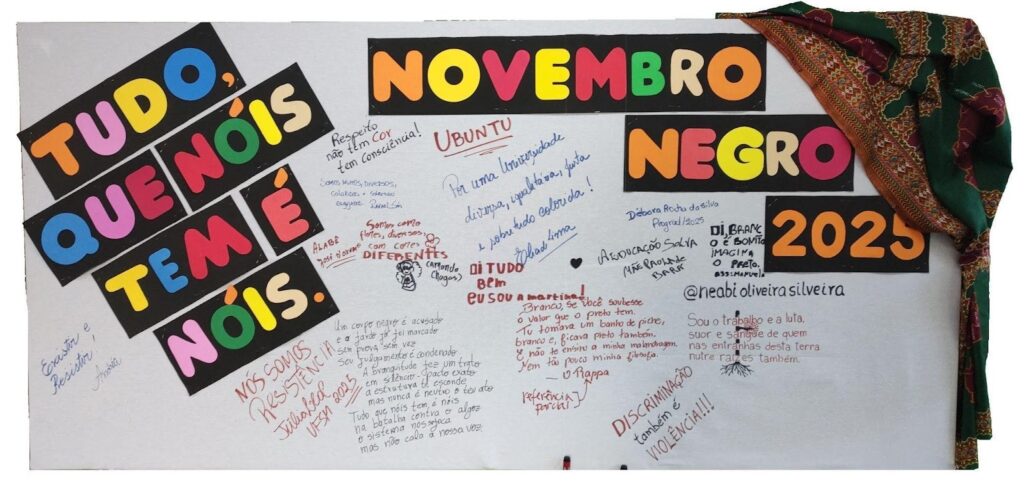 TUDO,
QUE NÓIS
TEM É
NÓIS.
NOVEMBRO
NEGRO
2025
Respeito
não tem Cor
tem consciência!
UBUNTU
Por uma Universidade
diversa, igualitária, justa
e sobretudo colorida!
SOMOS MUITOS, DIVERSOS,
Somos como
flores, diversos:
com cores
DIFERENTES
(Armando
Chagas)
ALABÊ
Oi TUDO
BEM
eu sou a martina!
Débora Rocha da Silva
Prograd/2025
A EDUCAÇÃO SALVA
NÃO PARA DE
OI, BRANC
O É BONITO
IMAGINA
O PRETO.
@neabi oliveira silveira
Existir e
Resistir!
NÓS SOMOS
RESISTÊNCIA
UFSM 2025
Um corpo negro é acusado
e a farda já foi marcado
sem prova sem vez
seu julgamento é condenado
A branquitude fez um trato
em silêncio - pacto exato
a estrutura te esconde
mas nunca é neutro o teu ato
Tudo que nóis tem, é nóis
na batalha contra o algoz
o sistema nos sufoca
mas não cala a nossa voz
Branco, se você soubesse
o valor que o preto tem.
Tu tomava um banho de piche,
branco e, ficava preto também.
E não te ensino a minha malandragem.
Nem tão pouco minha filosofia.
— O Rappa
referência
parcial
Sou o trabalho e a luta,
suor e sangue de quem
nas entranhas desta terra
nutre raízes também.
DISCRIMINAÇÃO
também é
VIOLÊNCIA!!!